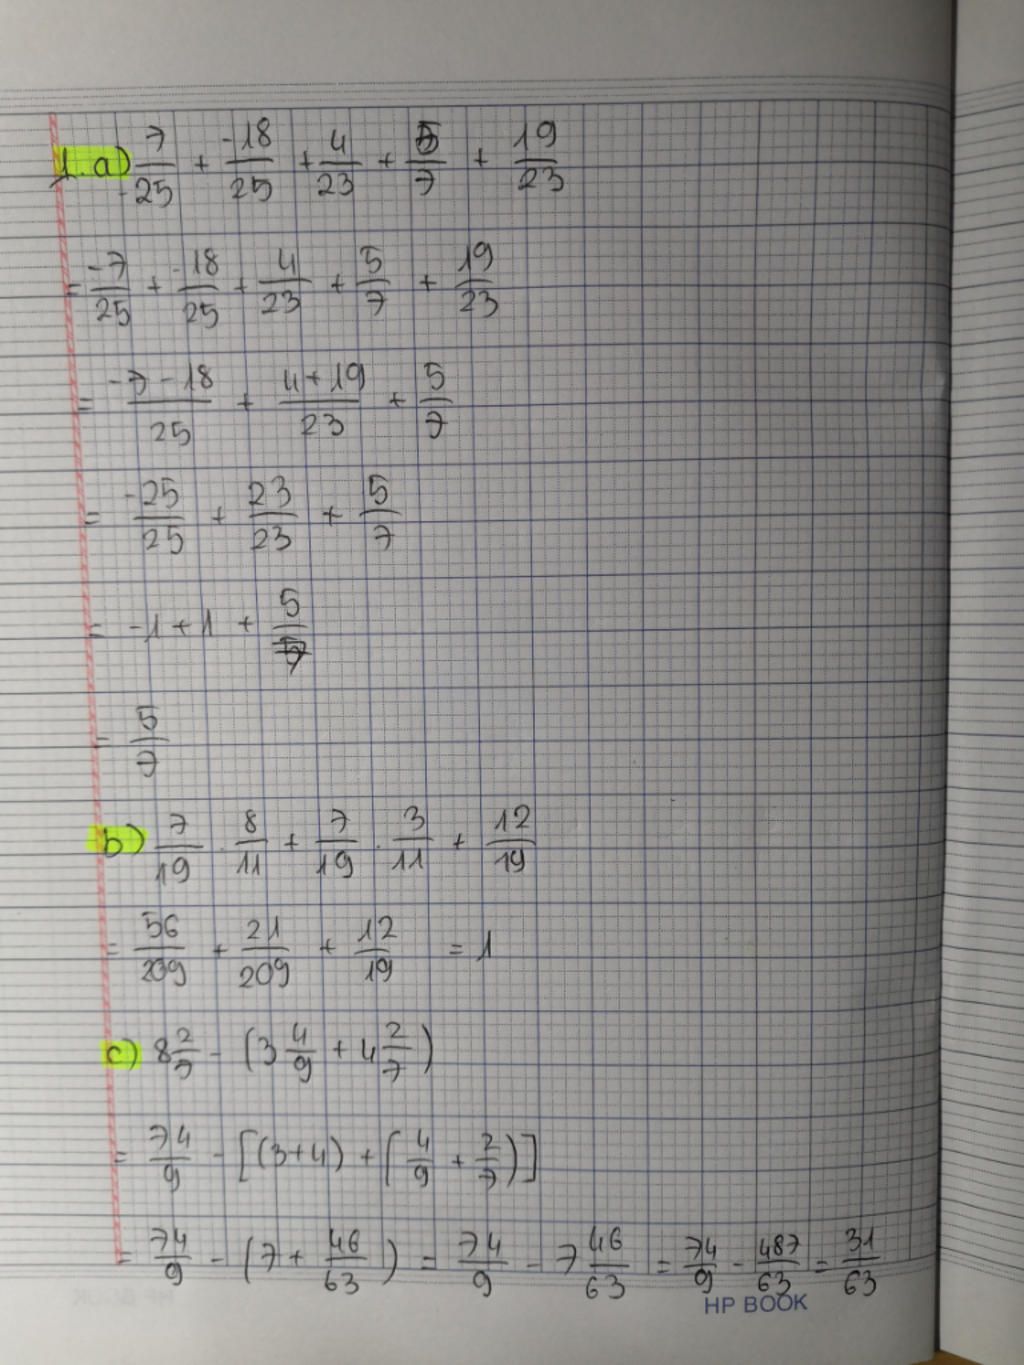 1. a) 7/-25 + -18/25 + 4/23 + 5/7 + 19/23
= -7/25 + -18/25 + 4/23 + 5/7 + 19/23
= -7-18/25 + 4+19/23 + 5/7
= -25/25 + 23/23 + 5/7
= -1 + 1 + 5/7
= 5/7
b) 7/19 . 8/11 + 7/19 . 3/11 + 12/19
= 56/209 + 21/209 + 12/19 = 1
c) 8 2/7 - (3 4/9 + 4 2/7)
= 74/9 - [(3+4) + (4/9 + 2/7)]
= 74/9 - (7 + 46/63) = 74/9 - 7 46/63 = 74/9 - 487/63 = 31/63
HP BOOK